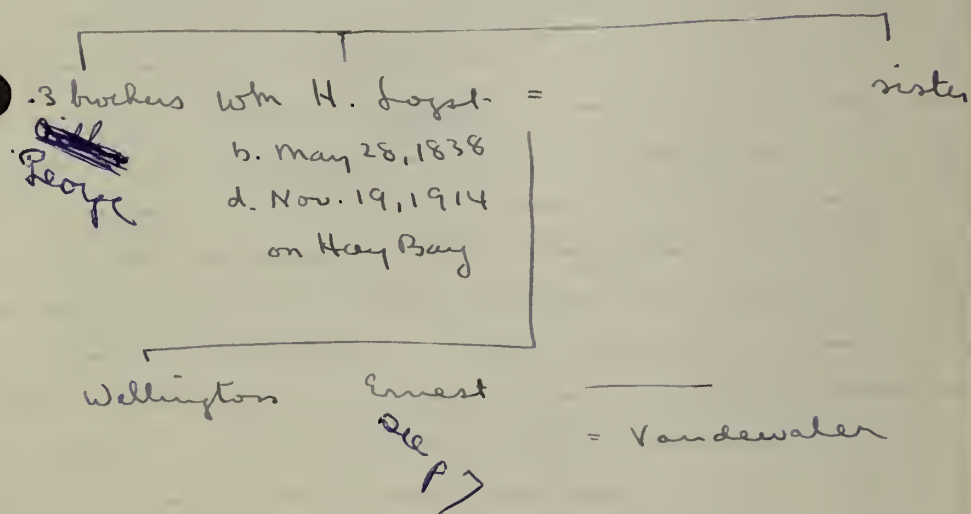 .3 brothers Wm H. Loyst = sister
George
b. May 28, 1838
d. Nov. 19, 1914
on Hay Bay
Wellington Ernest
See
P
= Vandewater